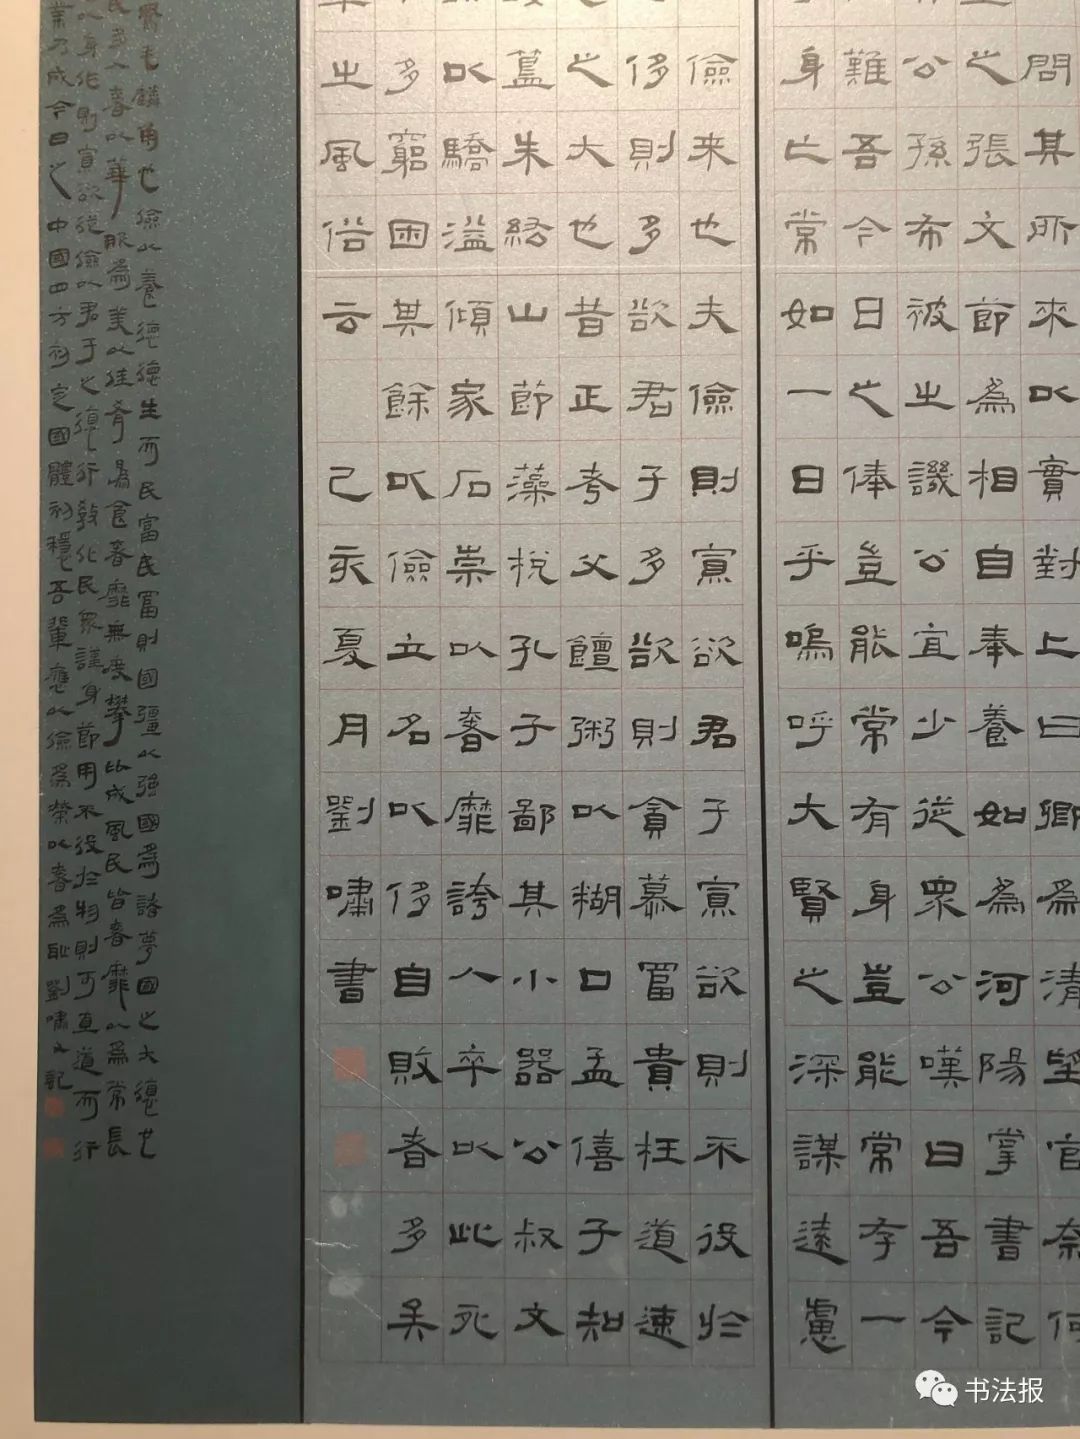 問其所來以實對上曰卿為清望官奈何
之張文節為相自奉養如為河陽掌書記
公孫布被之譏公宜少從眾公嘆曰吾今
難吾今日之俸豈能常有身豈能常存一
身亡常如一日乎嗚呼大賢之深謀遠慮
儉来也夫儉則寡欲君子寡欲則不役於
侈則多欲君子多欲則貪慕富貴枉道速
之大也昔正考父饘粥以糊口孟僖子知
簋朱紘山節藻梲孔子鄙其小器公叔文
以驕溢傾家石崇以奢靡誇人卒以此死
多窮困其餘以儉立名以侈自敗者多矣
之風俗云 己亥夏月劉嘯書
毛麟角也儉以養德德生而民富民富則國彊以強國為諸夢國之大德也
民多以奢以華服為美以佳肴為食奢靡無度攀比成風民皆奢靡以為常長
以身化則寡欲從儉以君子之德行教化民眾謹身節用不役於物則可直道而行
業乃成今日之中國四方初定國體初穩吾輩應以儉為榮以奢為恥劉嘯又記
书法报